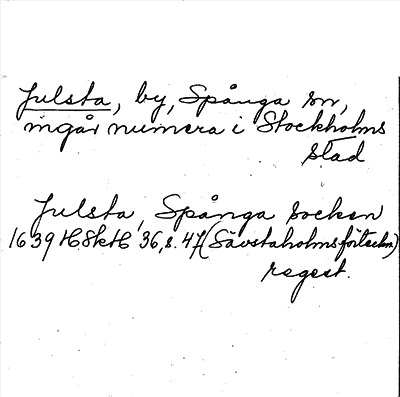 Julsta, by, Spånga sn,
ingår numera i Stockholms
stad
Julsta, Spånga socken
1639 HSkH 36, s. 47 (Sävstaholmsförteckn)
regest.